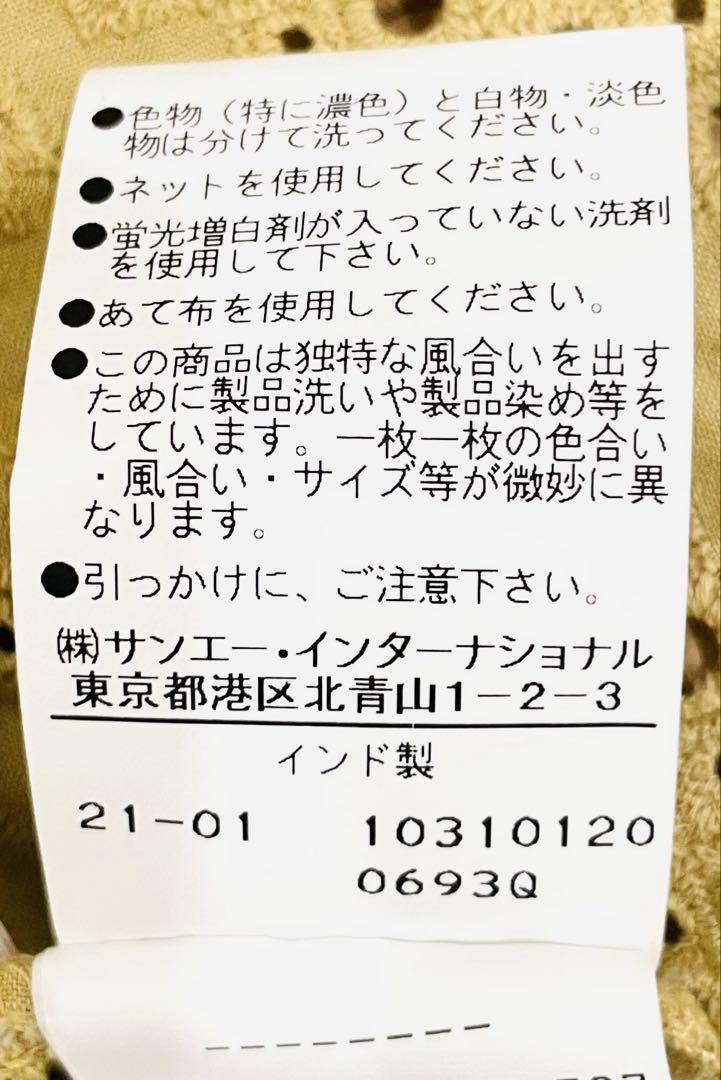 ●色物（特に濃色）と白物・淡色
物は分けて洗ってください。
●ネットを使用してください。
●蛍光増白剤が入っていない洗剤
を使用して下さい。
●あて布を使用してください。
●この商品は独特な風合いを出す
ために製品洗いや製品染め等を
しています。一枚一枚の色合い
・風合い・サイズ等が微妙に異
なります。
●引っかけに、ご注意下さい。
㈱サンエー・インターナショナル
東京都港区北青山1－2－3
インド製
21－01 10310120
0693Q